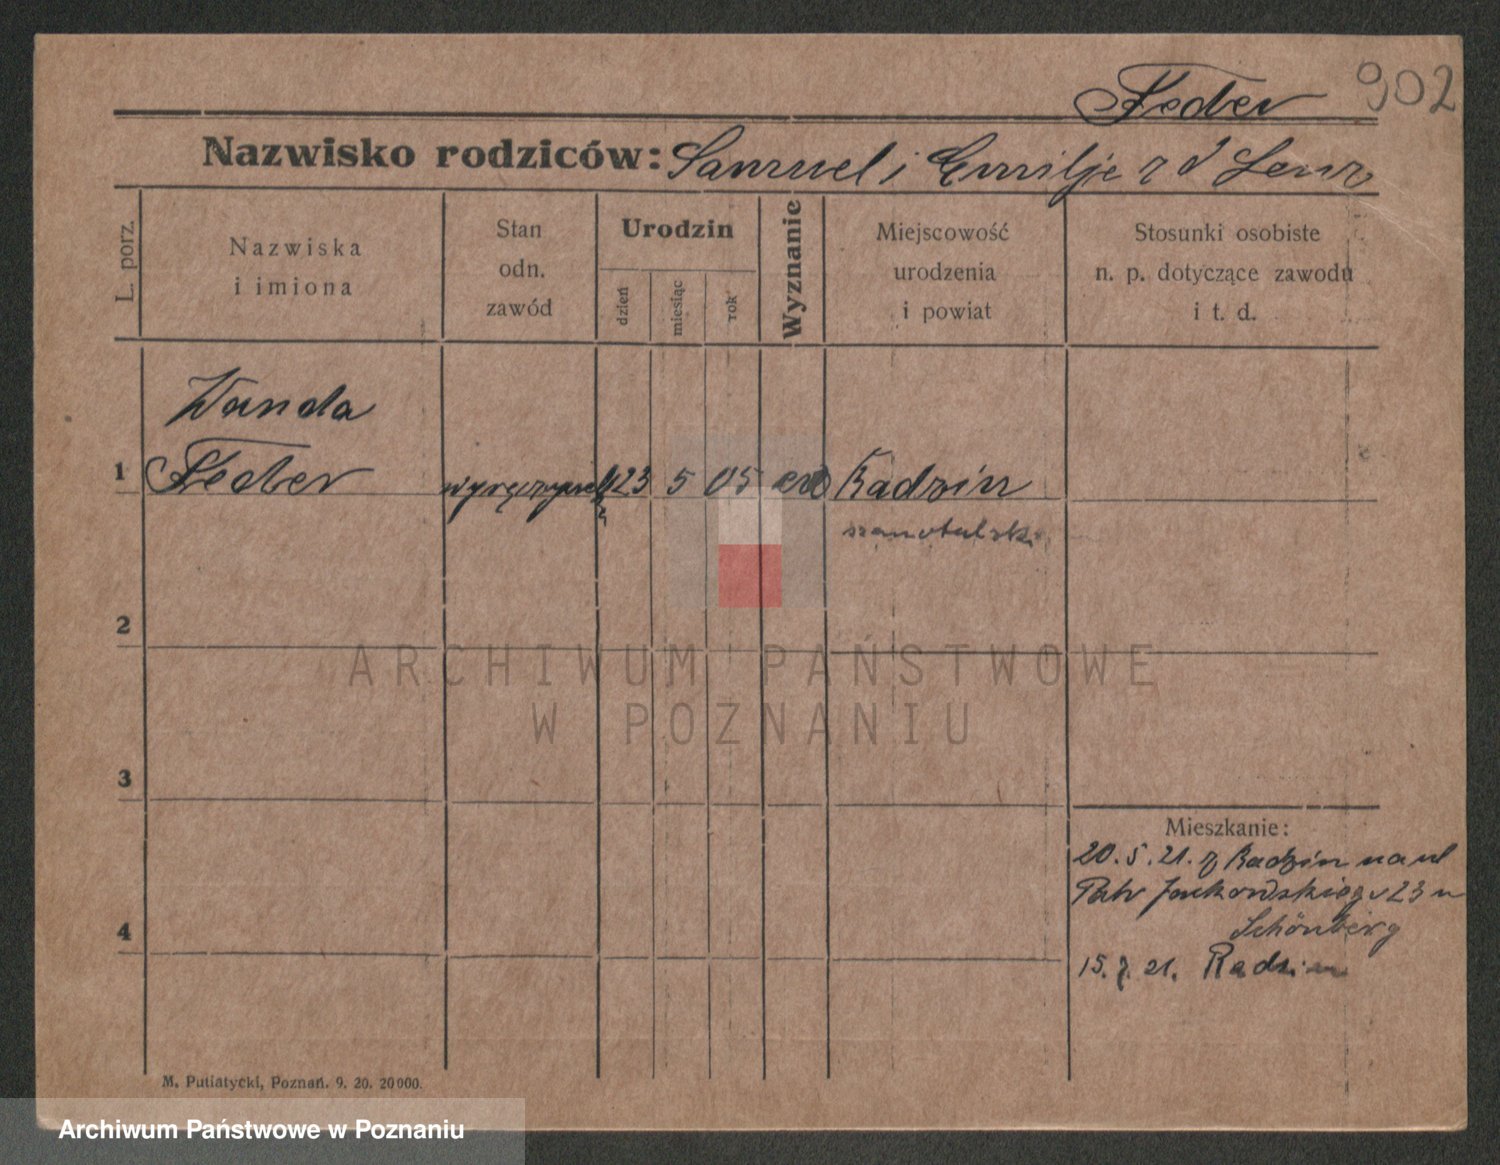 Feder 902
Nazwisko rodziców: Samuel i Emilje z d Lenz
L. porz.
Nazwiska
i imiona
Stan
odn.
zawód
Urodzin
dzień
miesiąc
rok
Wyznanie
Miejscowość
urodzenia
i powiat
Stosunki osobiste
n. p. dotyczące zawodu
i t. d.
Wanda
1 Feder 23 5 05 Radzin
szamotulski
2
3
4
Mieszkanie:
20.5.21. z Radzin na ul
Patr Jackowskiego 23 u
Schönberg
15.7.21. Radzin
M. Putiatycki, Poznań. 9. 20. 20000.
ARCHIWUM PAŃSTWOWE
W POZNANIU
Archiwum Państwowe w Poznaniu